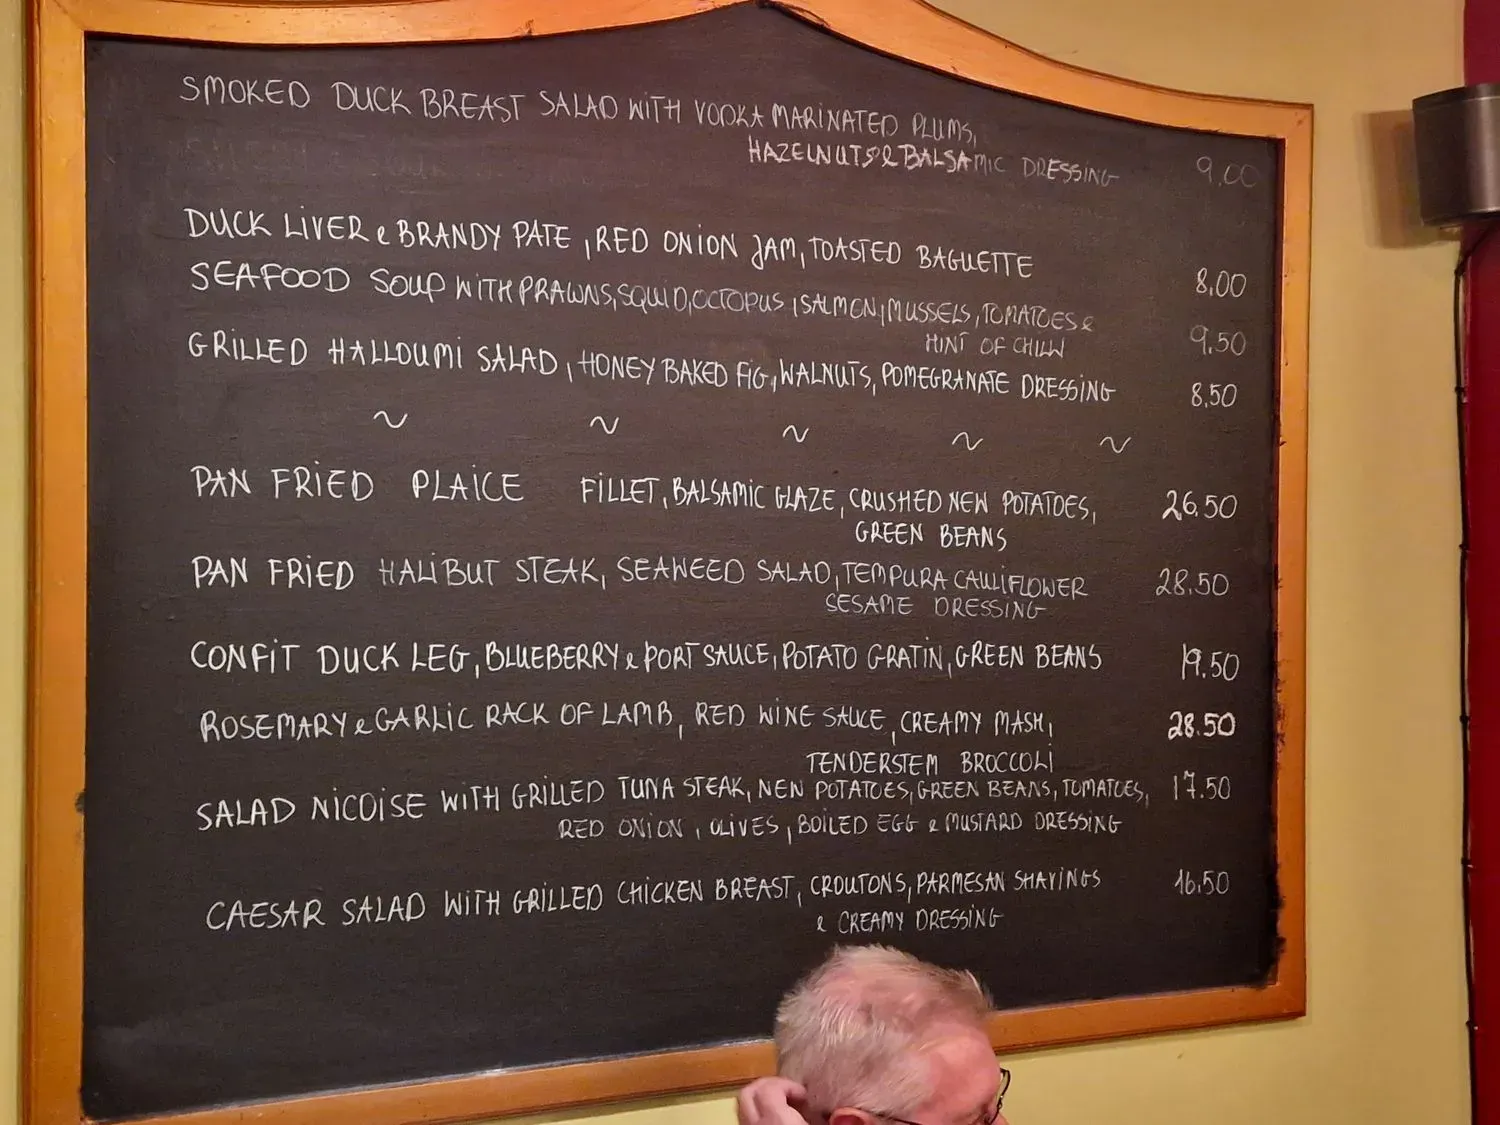 SMOKED DUCK BREAST SALAD WITH VODKA MARINATED PLUMS,
HAZELNUTS & BALSAMIC DRESSING 9.00
DUCK LIVER & BRANDY PATE, RED ONION JAM, TOASTED BAGUETTE 8.00
SEAFOOD SOUP WITH PRAWNS, SQUID, OCTOPUS, SALMON, MUSSELS, TOMATOES &
HINT OF CHILLI 9.50
GRILLED HALLOUMI SALAD, HONEY BAKED FIG, WALNUTS, POMEGRANATE DRESSING 8.50
~ ~ ~ ~ ~
PAN FRIED PLAICE FILLET, BALSAMIC GLAZE, CRUSHED NEW POTATOES, 26.50
GREEN BEANS
PAN FRIED HALIBUT STEAK, SEAWEED SALAD, TEMPURA CAULIFLOWER 28.50
SESAME DRESSING
CONFIT DUCK LEG, BLUEBERRY & PORT SAUCE, POTATO GRATIN, GREEN BEANS 19.50
ROSEMARY & GARLIC RACK OF LAMB, RED WINE SAUCE, CREAMY MASH, 28.50
TENDERSTEM BROCCOLI
SALAD NICOISE WITH GRILLED TUNA STEAK, NEW POTATOES, GREEN BEANS, TOMATOES, 17.50
RED ONION, OLIVES, BOILED EGG & MUSTARD DRESSING
CAESAR SALAD WITH GRILLED CHICKEN BREAST, CROUTONS, PARMESAN SHAVINGS 16.50
& CREAMY DRESSING